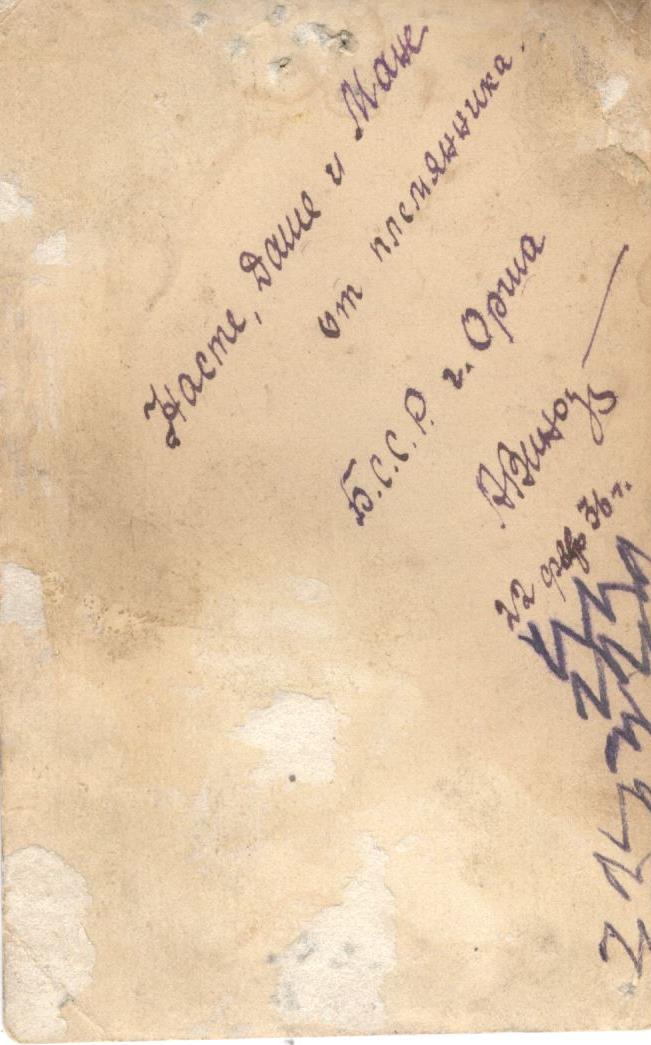 Насте, Даше и Мане
от племянника.
Б.С.С.Р. г. Орша
22 фев 36 г.